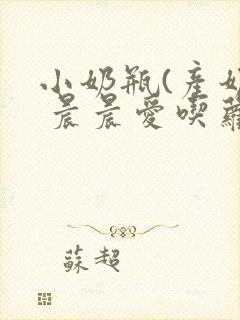 小奶瓶(產奶
晨晨愛喫蘿
蘇超